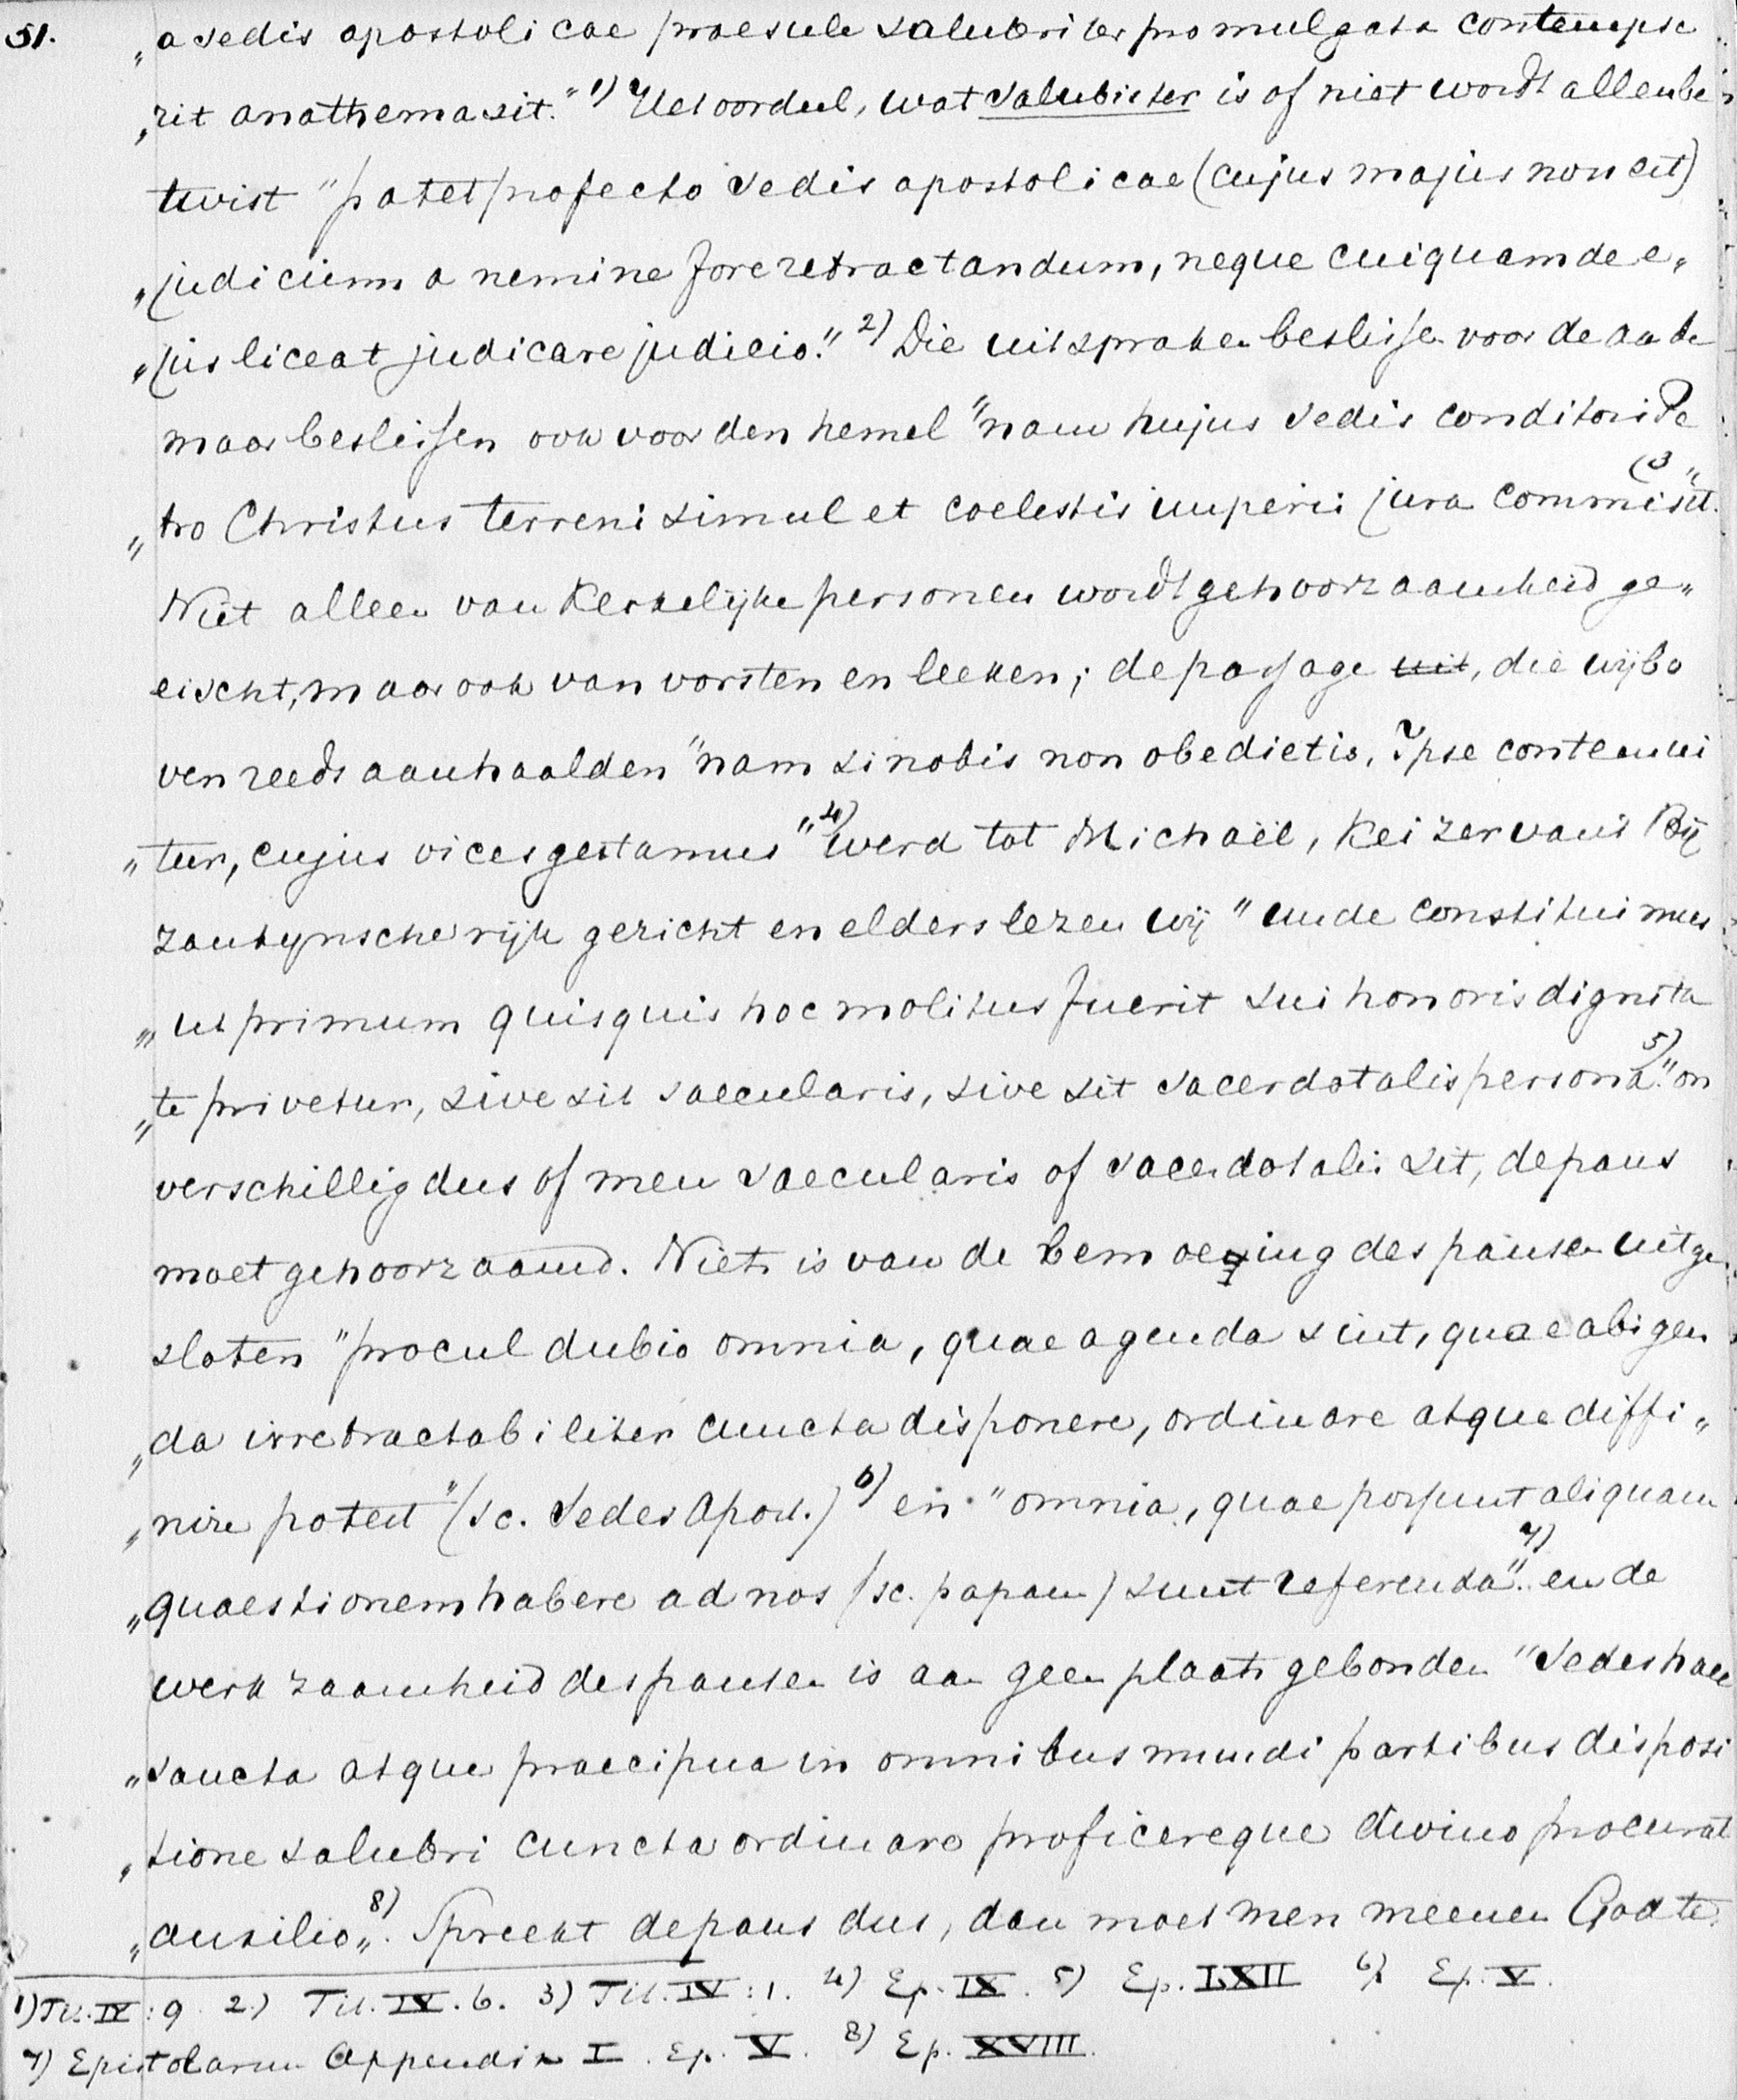 51.
„a sedis apostolicae praesule salubriter promulgata contempse
„rit anathema sit." 1) Het oordeel, wat salubriter is of niet wordt alleen be
twist "patet profecto sedis apostolicae (cujus majus non est)
„judicium a nemine fore retractandum, neque cuiquam de e„
„jus liceat judicare judicio." 2) Die uitspraken beslissen voor de aarde
maar beslissen ook voor den hemel "nam hujus sedis conditori Pe
„tro Christus terreni simul et coelestis imperii jura commisit." (3
Niet alleen van Kerkelijke personen wordt gehoorzaamheid ge„
eischt, maar ook van vorsten en leeken; de passage uit, die wij bo
ven reeds aanhaalden "nam si nobis non obedietis, Ipse contemni
„tur, cujus vices gestamus" 4) werd tot Michaël, Keizer van 't By
zantynsche rijk gericht en elders lezen wij "unde constituimus
„ut primum quisquis hoc molitus fuerit sui honoris dignita
„te privetur, sive sit saecularis, sive sit sacerdotalis persona." 5) on
verschillig dus of men saecularis of sacerdotalis sit, de paus
moet gehoorzaamd. Niets is van de bemoeiing des pausen uitge
sloten "procul dubio omnia, quae agenda sint, quae abigen
„da irretractabiliter cuncta disponere, ordinare atque diffi„
„nire potest" (sc. Sedes Apost.) 6) en "omnia, quae possunt aliquam
„quaestionem habere ad nos (sc. papam) sunt referenda". 7) en de
werkzaamheid des pausen is aan geen plaats gebonden "Sedes haec
„sancta atque praecipua in omnibus mundi partibus disposi
„tione salubri cuncta ordinare proficereque divino procurat
„auxilio„. 8) Spreekt de paus dus, dan moet men meenen God te
1) Tit. IV : 9 2.) Tit. IV. 6. 3) Tit. IV : 1. 4) Ep. IX. 5) Ep. LXII 6) Ep. V.
7) Epistolarum Appendix I. Ep. V. 8) Ep. XVIII.